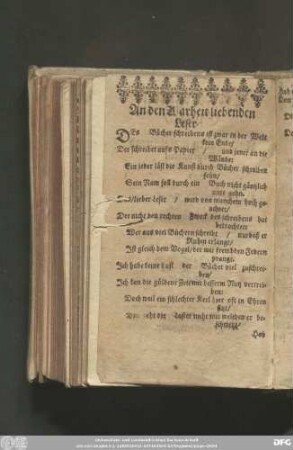 An den Warheit liebenden
Leser.
DEs Bücher schreibens ist zwar in der Welt
kein Ende/
Der schreibet auffs Papier / und jener an die
Wände:
Ein jeder läst die Kunst durch Bücher schreiben
sehn/
Sein Nam soll durch ein Buch nicht gäntzlich
unter gehn.
lieber Leser / wird von manchem hoch ge-
nehret/
Der nicht den rechten Zweck des schreibens hat
betrachtet
Wer aus viel Büchern schreibt / nur daß er
Ruhm erlange/
Ist gleich dem Vogel/ der mit frembden Federn
prange.
Ich habe keine Lust der Bücher viel zuschrei-
ben/
Ich kan die güldene Zeit mit besserm Nutz vertrei-
ben:
Doch weil ein schlechter Kerl hier offt in Ehren
sitzt/
Laster nicht mit welchen er be-
schmeitzt/
Hab